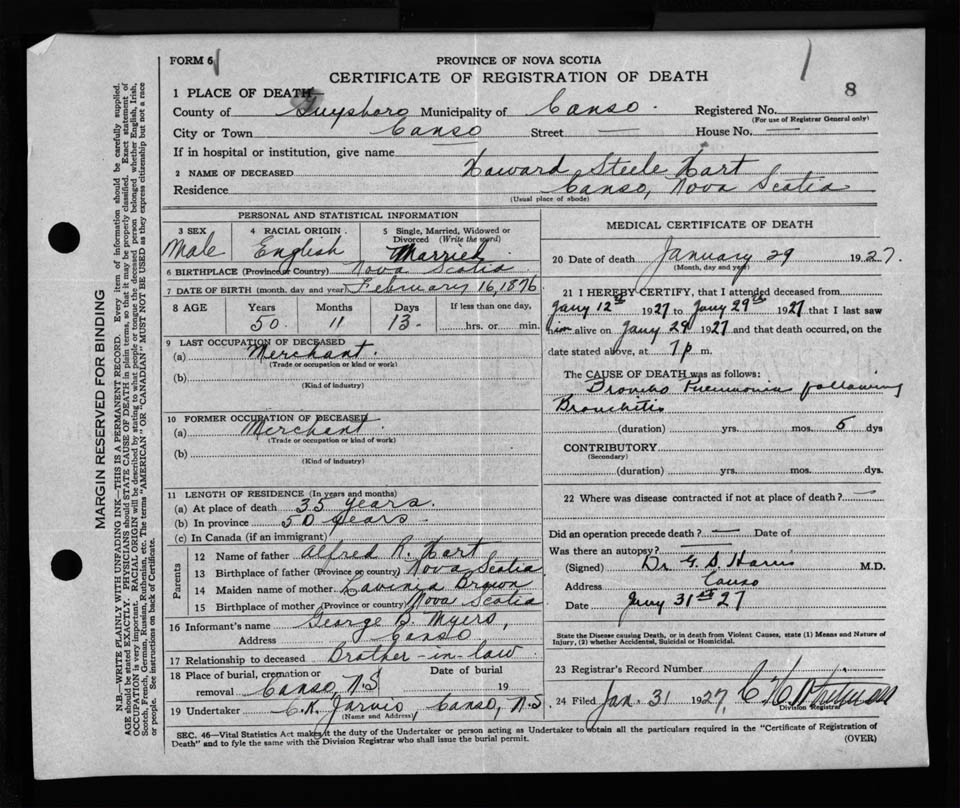 FORM 6
1
1
PROVINCE OF NOVA SCOTIA
CERTIFICATE OF REGISTRATION OF DEATH
8
1 PLACE OF DEATH
County of Guysboro Municipality of Canso. Registered No.
(For use of Registrar General only)
City or Town Canso Street — House No. —
If in hospital or institution, give name
2 NAME OF DECEASED Howard Steele Hart
Residence Canso, Nova Scotia
(Usual place of abode)
PERSONAL AND STATISTICAL INFORMATION
3 SEX 4 RACIAL ORIGIN 5 Single, Married, Widowed or
Divorced (Write the word)
Male English Married
6 BIRTHPLACE (Province or Country) Nova Scotia.
7 DATE OF BIRTH (month, day and year) February 16, 1876
8 AGE Years Months Days If less than one day,
50 11 13 hrs. or min.
9 LAST OCCUPATION OF DECEASED
(a) Merchant.
(Trade or occupation or kind or work)
(b)
(Kind of industry)
10 FORMER OCCUPATION OF DECEASED
(a) Merchant.
(Trade or occupation or kind of work)
(b)
(Kind of industry)
11 LENGTH OF RESIDENCE (In years and months)
(a) At place of death 35 years.
(b) In province 50 years.
(c) In Canada (if an immigrant)
Parents
12 Name of father Alfred R. Hart
13 Birthplace of father (Province or country) Nova Scotia
14 Maiden name of mother Lavinia Brown
15 Birthplace of mother (Province or country) Nova Scotia
16 Informant's name George B. Myers,
Address Canso
17 Relationship to deceased Brother-in-law
18 Place of burial, cremation or Date of burial
removal Canso, N.S 19
19 Undertaker C.K. Jarvis Canso, N.S
(Name and Address)
MEDICAL CERTIFICATE OF DEATH
20 Date of death January 29 1927.
(Month, day and year)
21 I HEREBY CERTIFY, that I attended deceased from
Jany 12th 1927 to Jany 29th 1927 that I last saw
him alive on Jany 29 1927 and that death occurred, on the
date stated above, at 7 p m.
The CAUSE OF DEATH was as follows:
Broncho Pneumonia following
Bronchitis
(duration) yrs. mos. 5 dys
CONTRIBUTORY
(Secondary)
(duration) yrs. mos. dys.
22 Where was disease contracted if not at place of death? —
Did an operation precede death? — Date of
Was there an autopsy? —
(Signed) Dr G. S. M.D.
Address Canso
Date Jany 31st 27
State the Disease causing Death, or in death from Violent Causes, state (1) Means and Nature of
Injury, (2) whether Accidental, Suicidal or Homicidal.
23 Registrar's Record Number
24 Filed Jan. 31 1927,
Division Registrar
SEC. 46—Vital Statistics Act makes it the duty of the Undertaker or person acting as Undertaker to obtain all the particulars required in the "Certificate of Registration of
Death" and to fyle the same with the Division Registrar who shall issue the burial permit. (OVER)
MARGIN RESERVED FOR BINDING
N.B.—WRITE PLAINLY WITH UNFADING INK—THIS IS A PERMANENT RECORD. Every item of information should be carefully supplied.
AGE should be stated EXACTLY. PHYSICIANS should STATE CAUSE OF DEATH in plain terms, so that it may be properly classified. Exact statement of
OCCUPATION is very important. RACIAL ORIGIN will be described by stating to what people or tongue the deceased person belonged whether English, Irish,
Scotch, French, German, Russian, Ruthenian, etc. The terms "AMERICAN" OR "CANADIAN" MUST NOT BE USED as they express citizenship but not a race
or people. See instructions on back of Certificate.